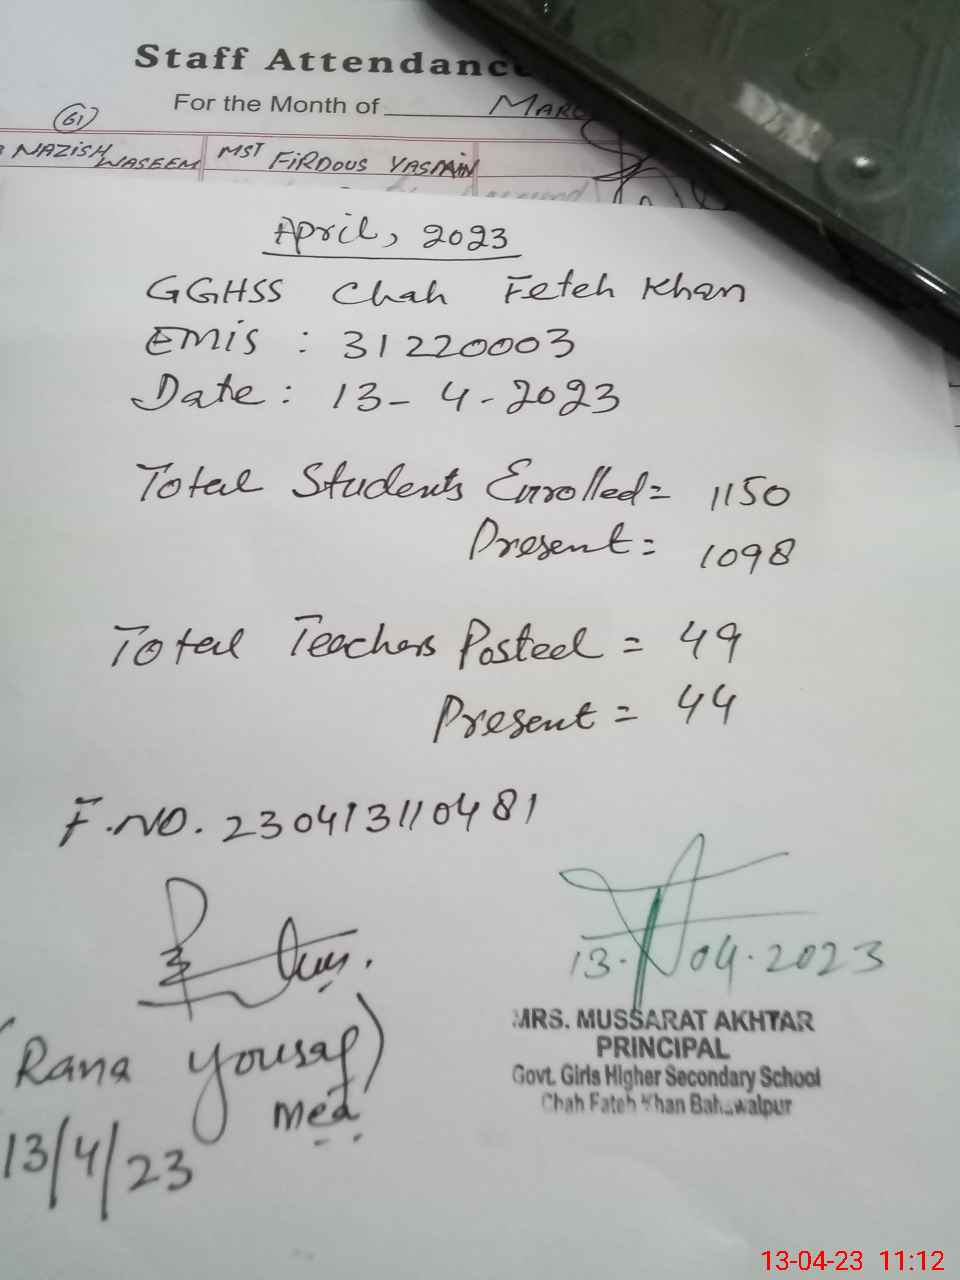 Staff Attendanc
For the Month of MARC
61
NAZISH WASEEM MST FIRDOUS YASMIN
April, 2023
GGHSS Chah Feteh Khan
EMIS : 31220003
Date : 13-4-2023
Total Students Enrolled = 1150
Present = 1098
Total Teachers Posted = 49
Present = 44
F.NO. 230413110481
13.04.2023
MRS. MUSSARAT AKHTAR
PRINCIPAL
Govt. Girls Higher Secondary School
Chah Fateh Khan Bahawalpur
(Rana Yousaf)
MEA
13/4/23
13-04-23 11:12